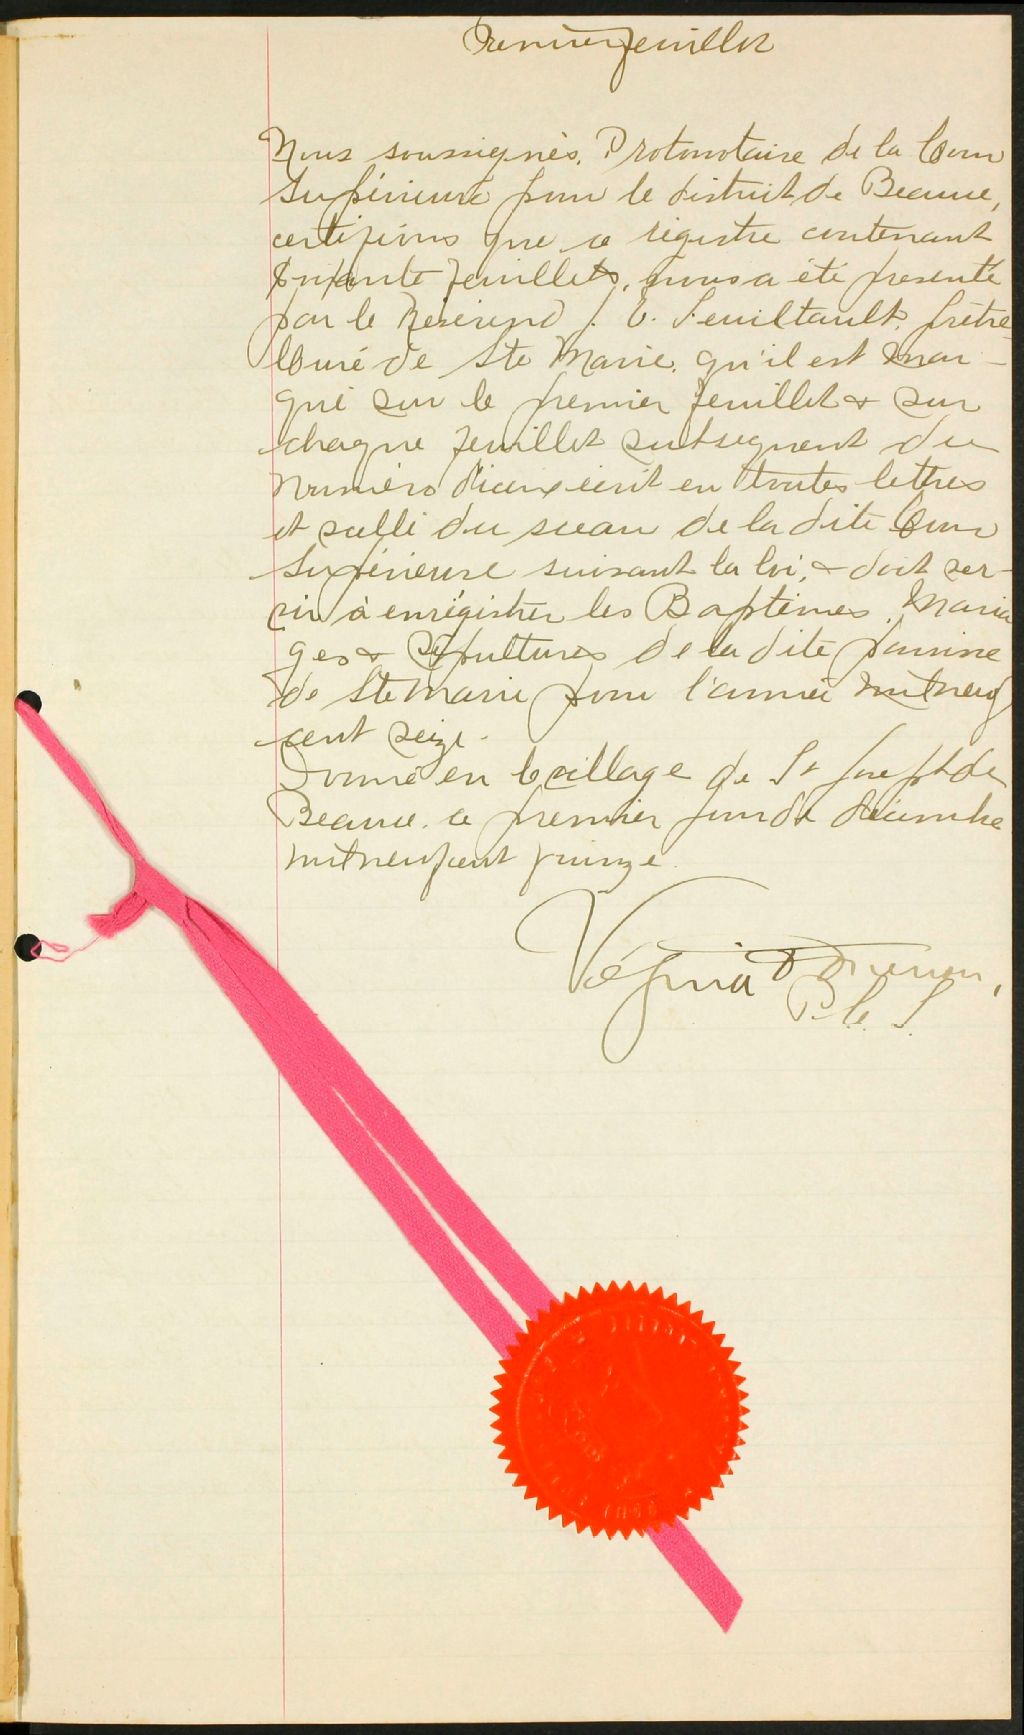 Premier feuillet
Nous soussignés, Protonotaire de la Cour
Supérieure pour le district de Beauce,
certifions que ce régistre contenant
feuillets, nous a été presenté
par le Révérend J. E. Feuiltault, prêtre
Curé de Ste Marie, qu'il est mar-
qué sur le premier feuillet & sur
chaque feuillet subsequent du
Numéro d'iceux écrit en toutes lettres
et scellé du sceau de la dite Cour
Supérieure suivant la loi, & doit ser-
vir à enrégistrer les Baptêmes, Maria
ges & Sépultures de la dite paroisse
de Ste Marie pour l'année mil neuf
cent seize.
Donné en le village de St Joseph de
Beauce, ce premier jour de décembre
mil neuf cent quinze.
Vézina &
P. C. S.